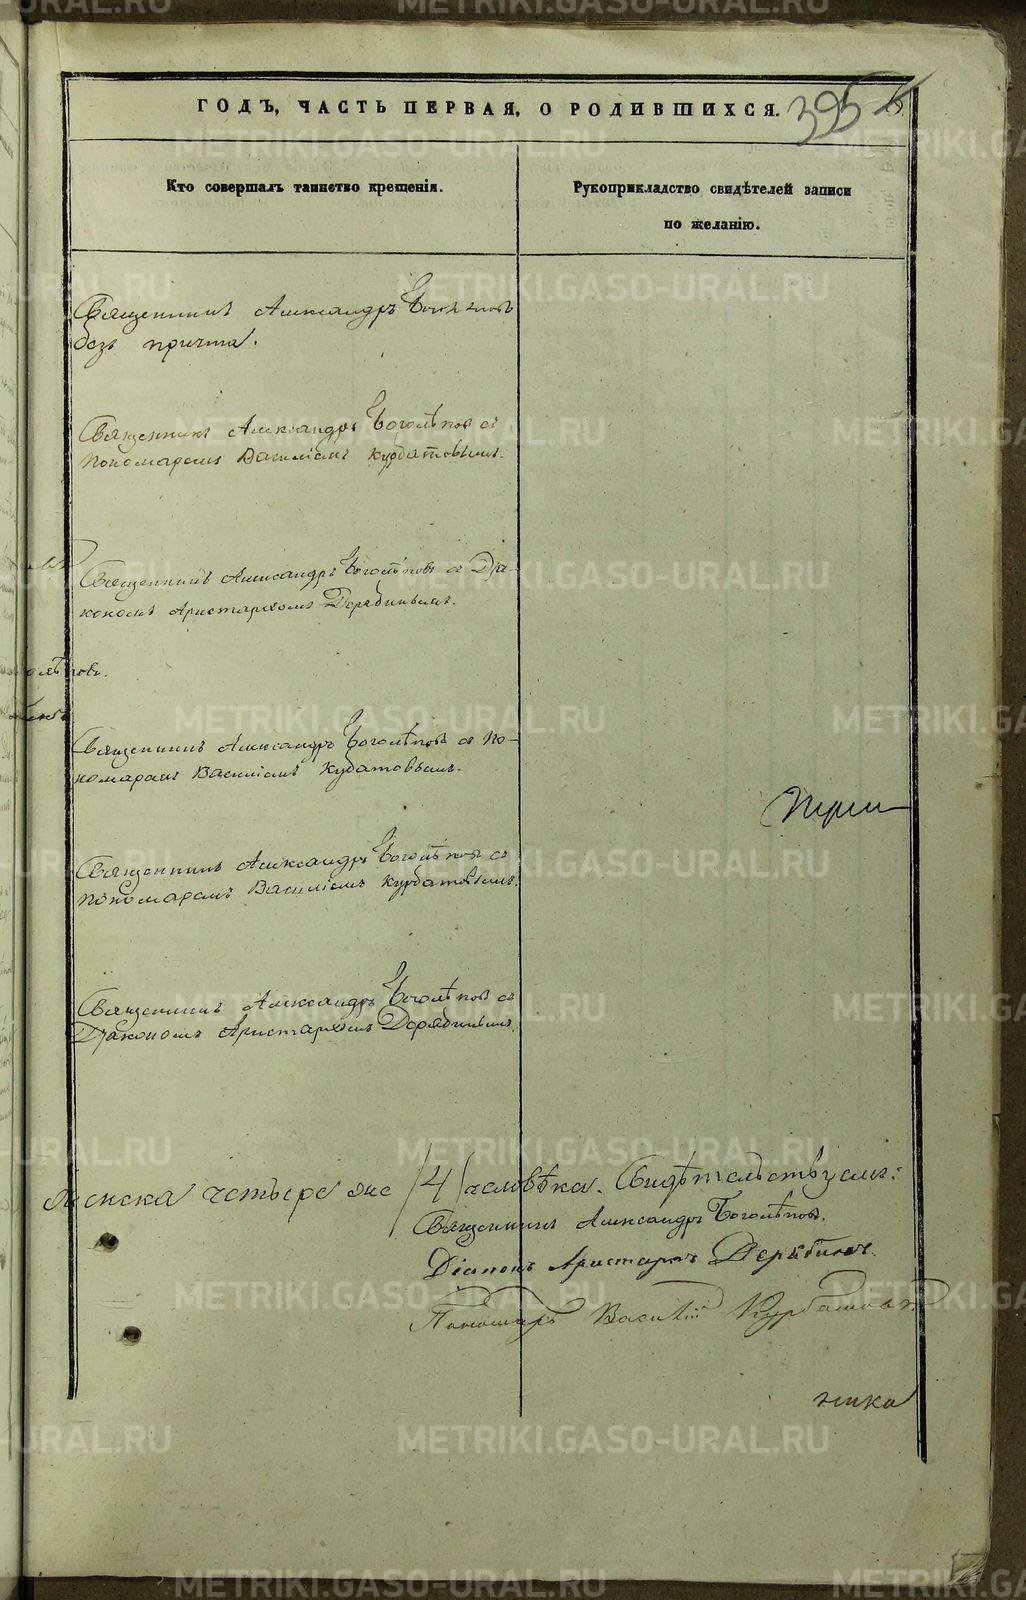 ГОДЪ, ЧАСТЬ ПЕРВАЯ, О РОДИВШИХСЯ.
395
Кто совершалъ таинство крещенія.
Рукоприкладство свидѣтелей записи
по желанію.
Священникъ Александръ Боголѣповъ
безъ причта.
Священникъ Александръ Боголѣповъ съ
пономаремъ Василіемъ Курбатовымъ.
Священникъ Александръ Боголѣповъ съ Дія-
кономъ Аристархомъ Дерябинымъ.
Священникъ Александръ Боголѣповъ съ По-
номаремъ Василіемъ Кубатовымъ.
Священникъ Александръ Боголѣповъ съ
пономаремъ Василіемъ Курбатовымъ.
Священникъ Александръ Боголѣповъ съ
Діакономъ Аристархомъ Дерябинымъ.
женска четыре же /4/ человѣка. Свидѣтельствуемъ:
Священникъ Александръ Боголѣповъ.
Діаконъ Аристархъ Дерябинъ.
Пономарь Василій Курбатовъ
ника
METRIKI.GASO-URAL.RU